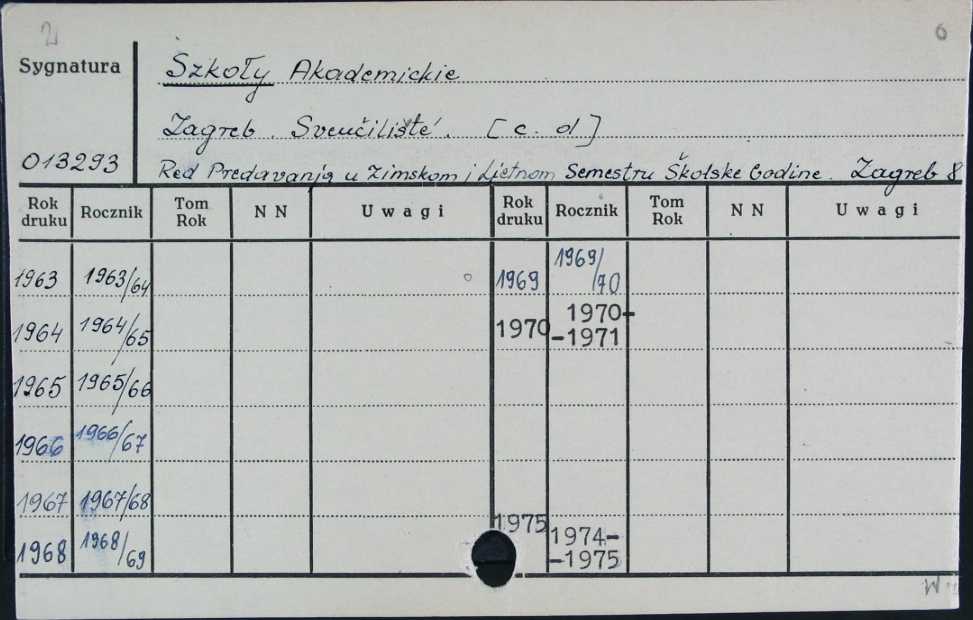 6
Sygnatura
Szkoły Akademickie
Zagreb. Sveučilišté. [c. d]
013293
Red Predavanja u Zimskom i Ljetnom Semestru Školske Godine. Zagreb 8
Rok druku Rocznik Tom Rok N N Uwagi Rok druku Rocznik Tom Rok N N Uwagi
1963 1963/64 1969 1969/70
1964 1964/65 1970 1970-
-1971
1965 1965/66
1966 1966/67
1967 1967/68
1968 1968/69 1975 1974-
-1975